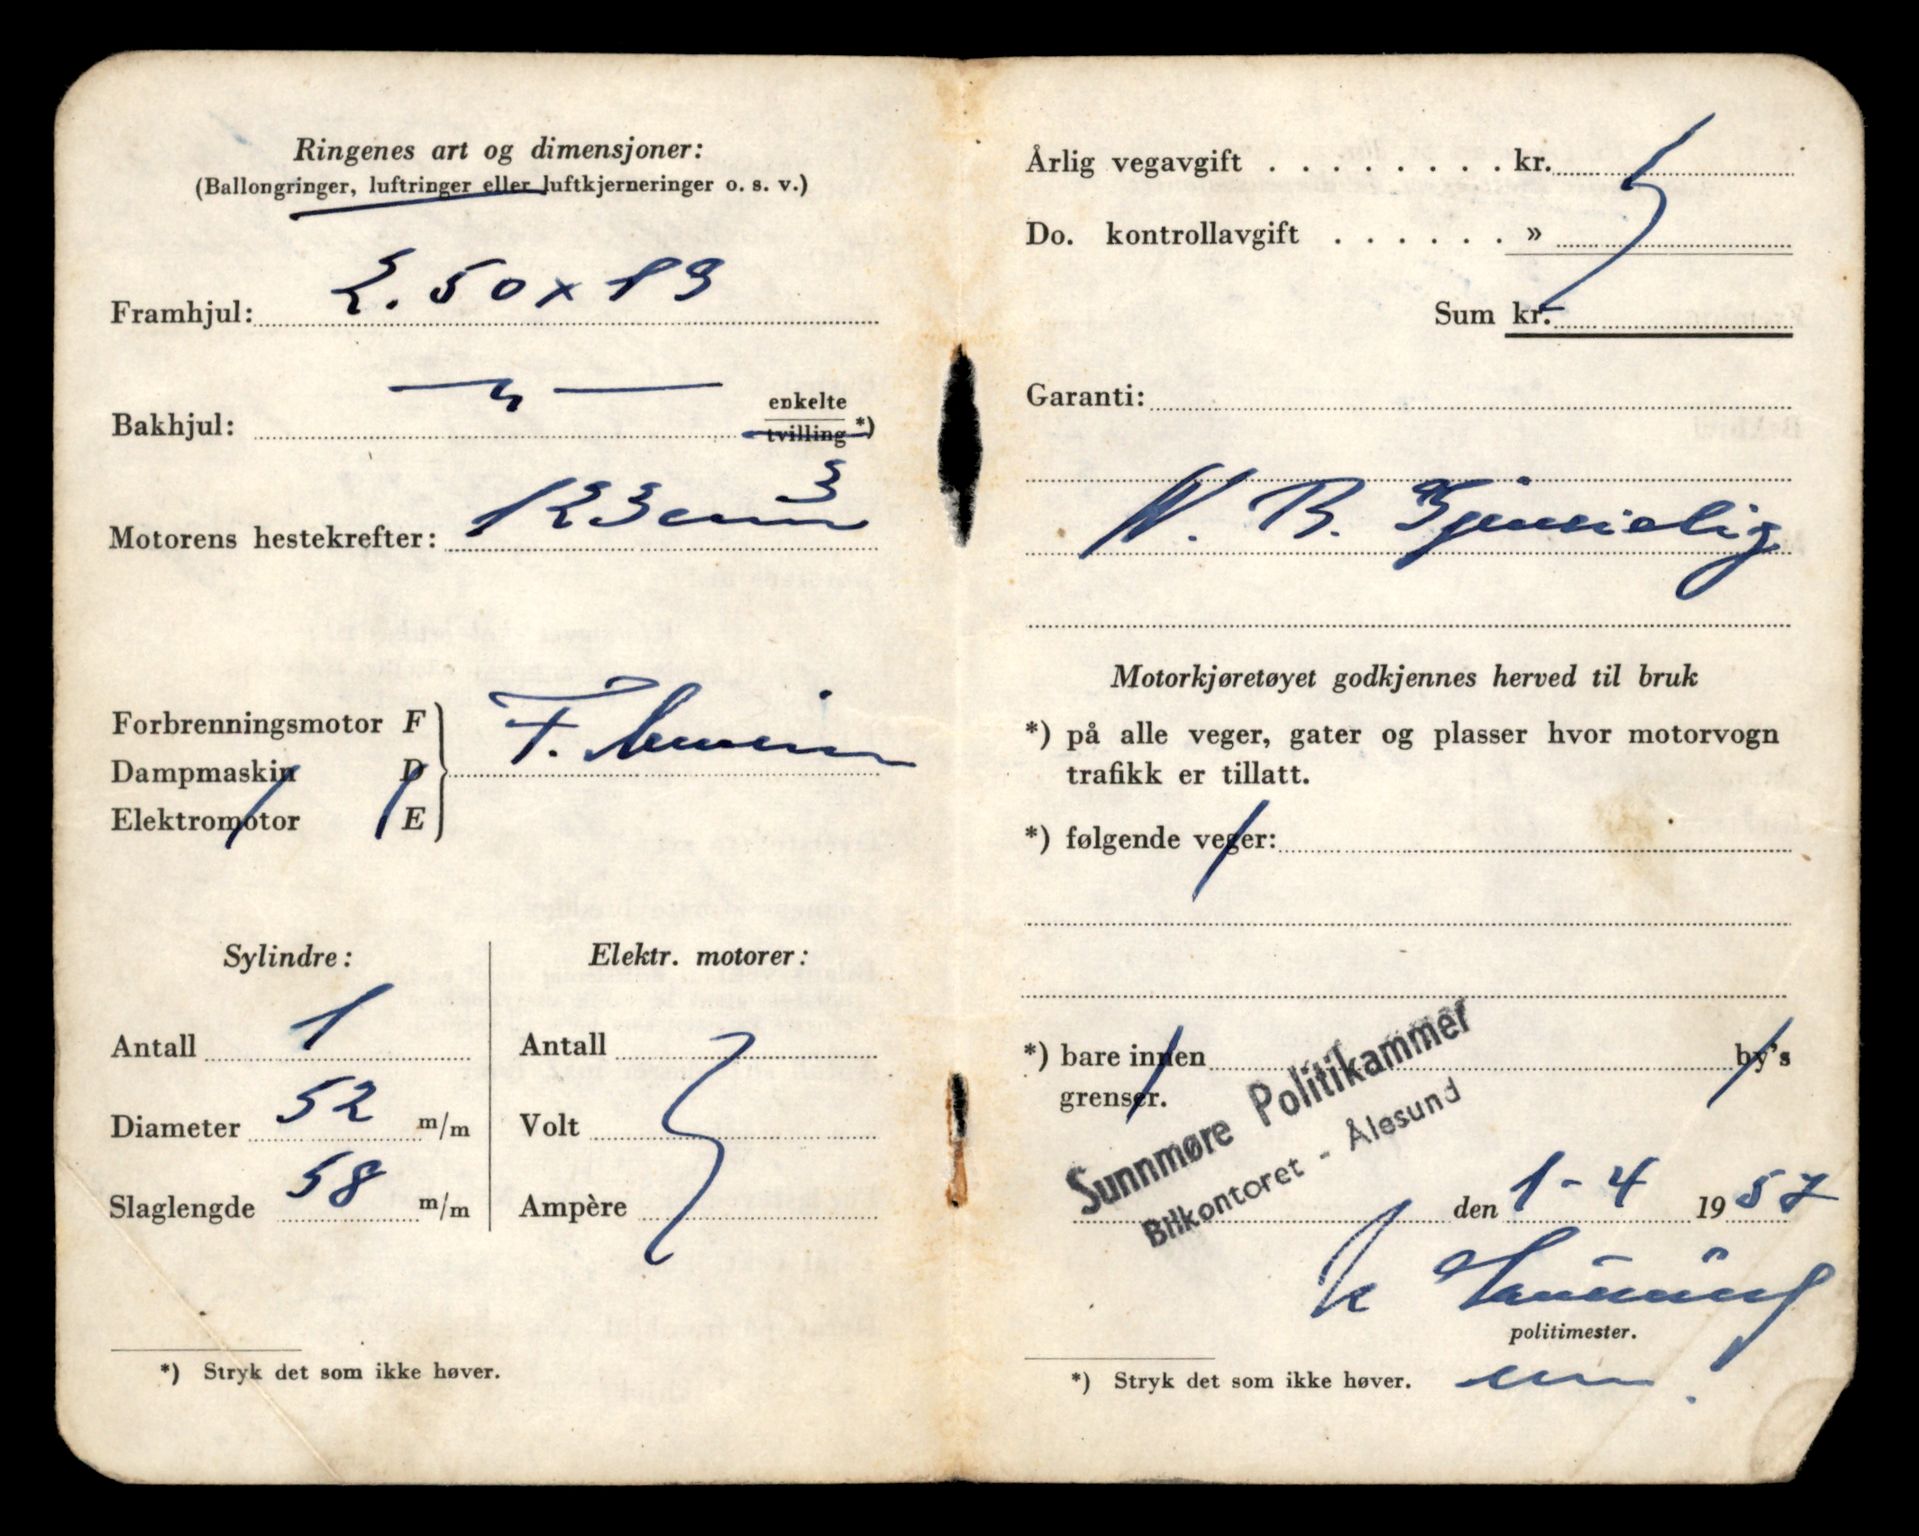 Ringenes art og dimensjoner:
(Ballongringer, luftringer eller luftkjerneringer o. s. v.)
Framhjul: 2.50 x 19
Bakhjul: — " — enkelte
tvilling *)
Motorens hestekrefter: 123 cm 3
Forbrenningsmotor F
Dampmaskin D
Elektromotor E
F.
Sylindre:
Antall 1
Diameter 52 m/m
Slaglengde 58 m/m
Elektr. motorer:
Antall
Volt
Ampère
*) Stryk det som ikke høver.
Årlig vegavgift . . . . . . . . kr.
Do. kontrollavgift . . . . . . »
Sum kr.
Garanti:
W. B.
Motorkjøretøyet godkjennes herved til bruk
*) på alle veger, gater og plasser hvor motorvogn
trafikk er tillatt.
*) følgende veger:
*) bare innen by's
grenser.
Sunnmøre Politikammer
Bilkontoret - Ålesund
den 1-4 1957
politimester.
*) Stryk det som ikke høver.